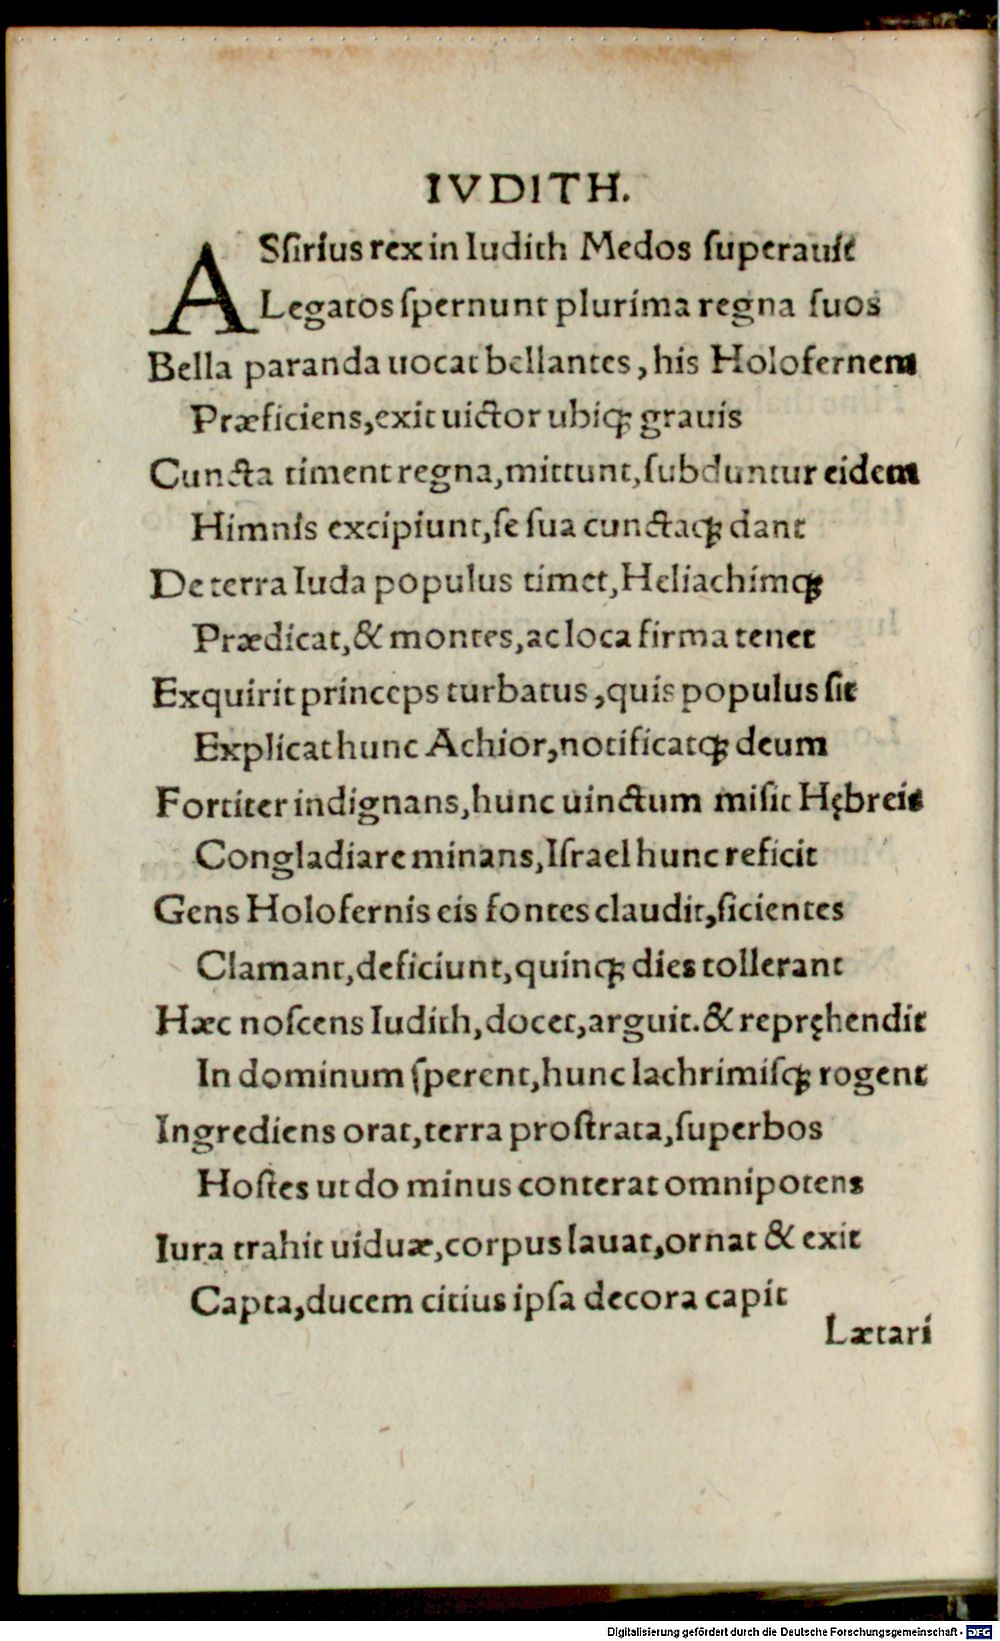 IVDITH.
ASſirius rex in Iudith Medos ſuperauit
Legatos ſpernunt plurima regna ſuos
Bella paranda uocat bellantes, his Holofernem
Præficiens, exit uictor ubiqꝫ grauis
Cuncta timent regna, mittunt, ſubduntur eidem
Himnis excipiunt, ſe ſua cunctaqꝫ dant
De terra Iuda populus timet, Heliachimqꝫ
Prædicat, & montes, ac loca firma tenet
Exquirit princeps turbatus, quis populus ſit
Explicat hunc Achior, notificatqꝫ deum
Fortiter indignans, hunc uinctum miſit Hębreis
Congladiare minans, Iſrael hunc reficit
Gens Holofernis eis fontes claudit, ſicientes
Clamant, deficiunt, quinqꝫ dies tollerant
Hæc noſcens Iudith, docet, arguit. & repręhendit
In dominum ſperent, hunc lachrimiſqꝫ rogent
Ingrediens orat, terra proſtrata, ſuperbos
Hoſtes ut do minus conterat omnipotens
Iura trahit uiduæ, corpus lauat, ornat & exit
Capta, ducem citius ipſa decora capit
Lætari
Digitalisierung gefördert durch die Deutsche Forschungsgemeinschaft - DFG